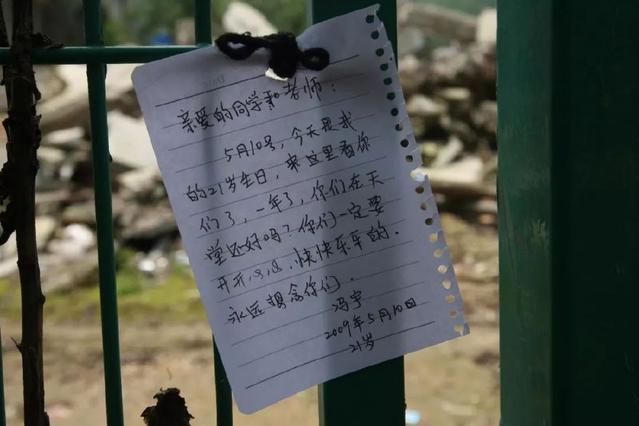 亲爱的同学和老师：
5月10号，今天是我
的21岁生日，来这里看你
们了，一年了，你们在天
堂还好吗？你们一定要
开开心心、快快乐乐的．
永远想念你们．
冯宇
2009年5月10日
21岁